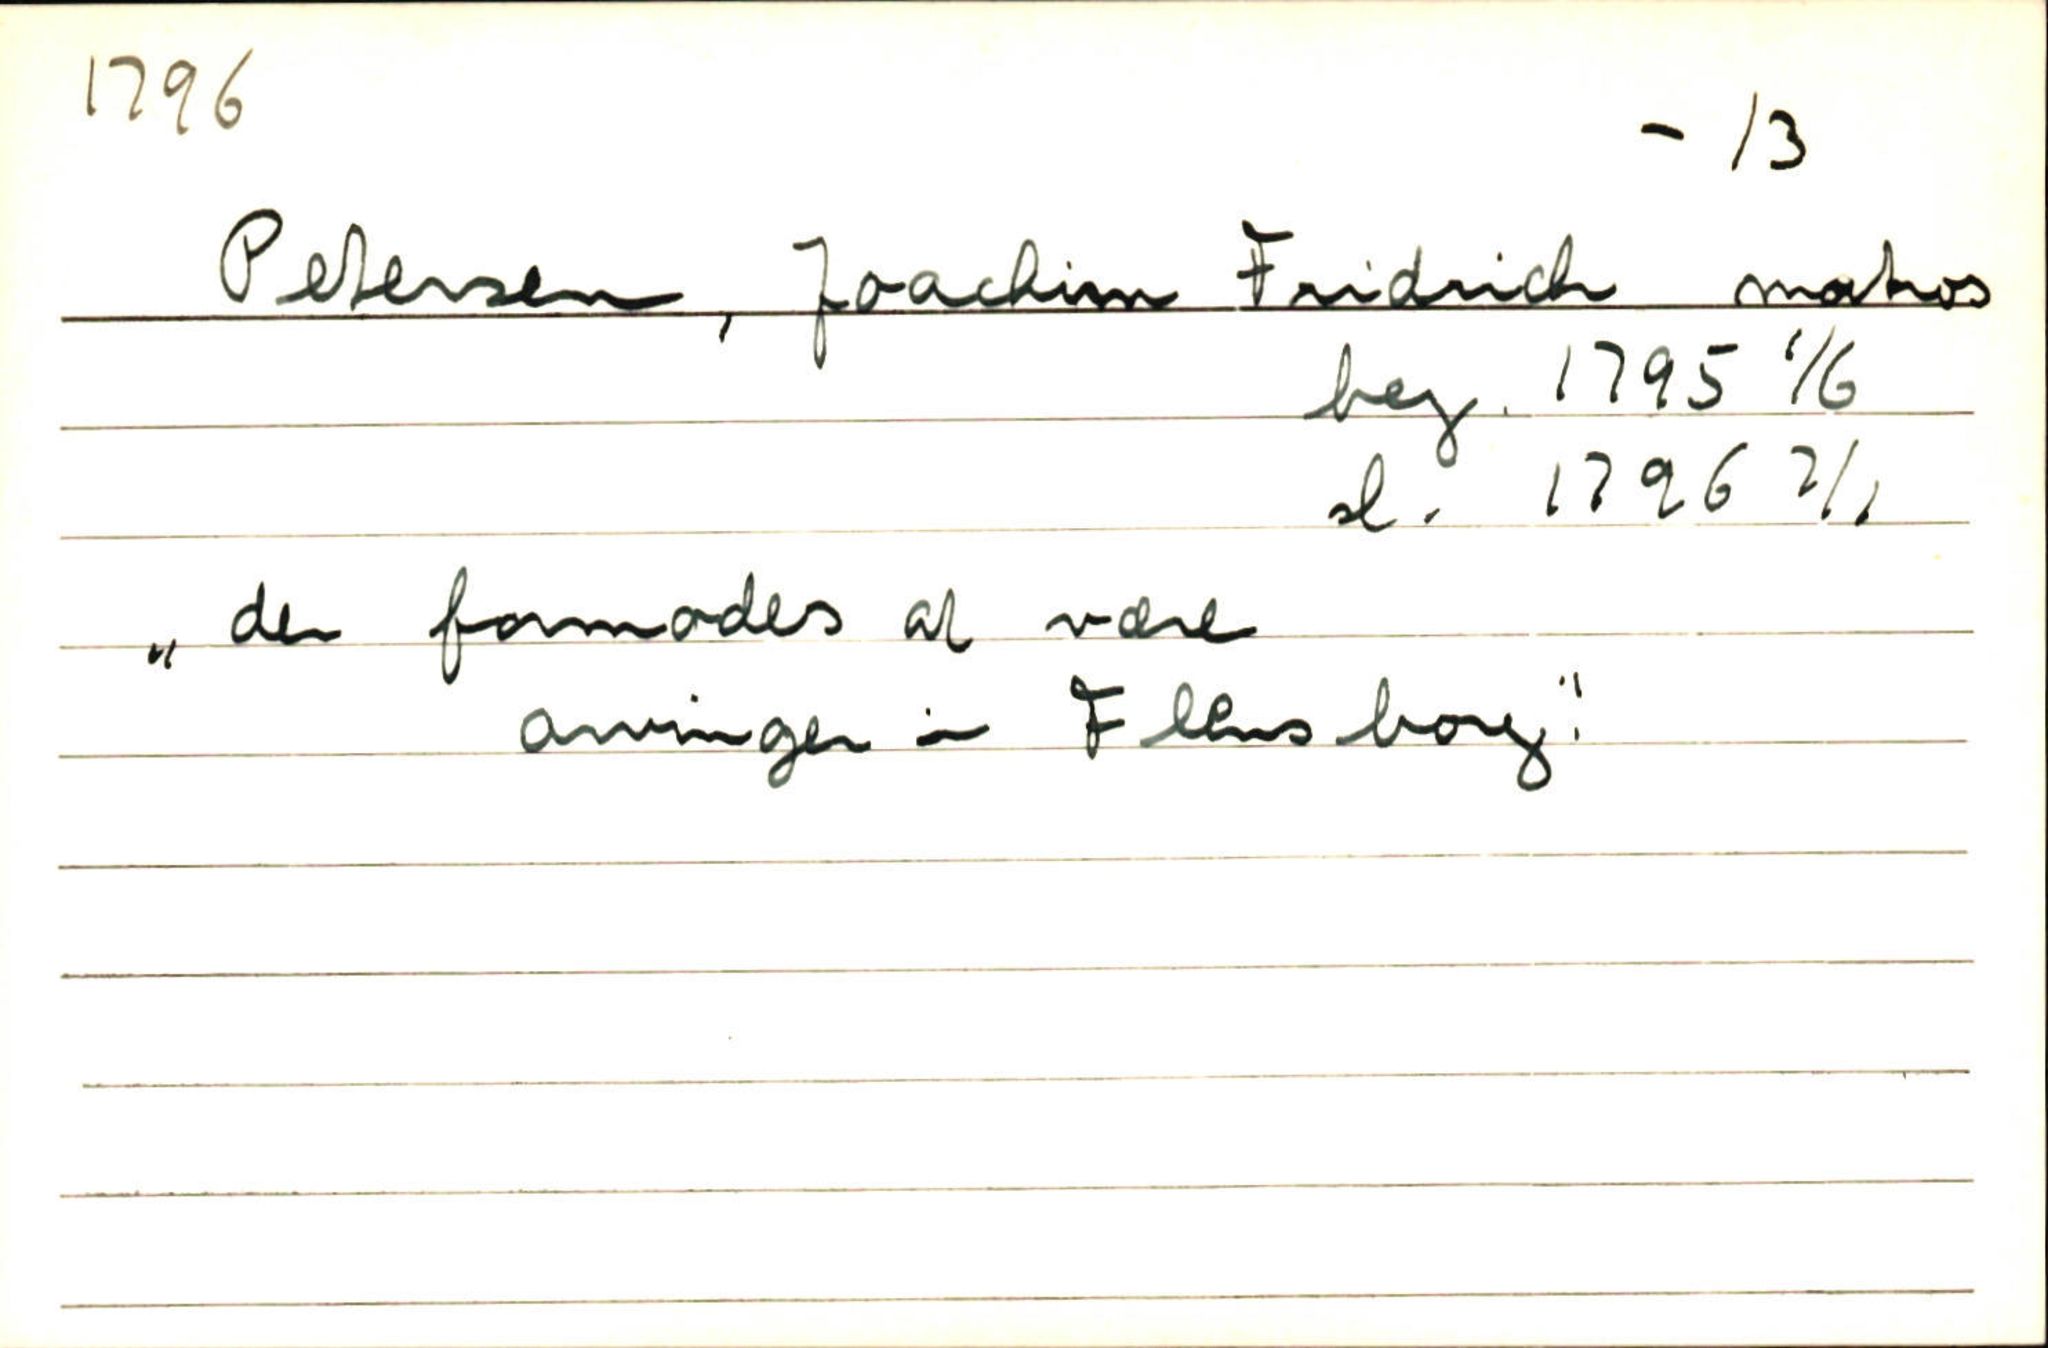 1796
- 13
Petersen, Joachim Fridrich matros
beg. 1795 1/6
sl. 1796 7/1
„der formodes at være
arvinger i Flensborg."